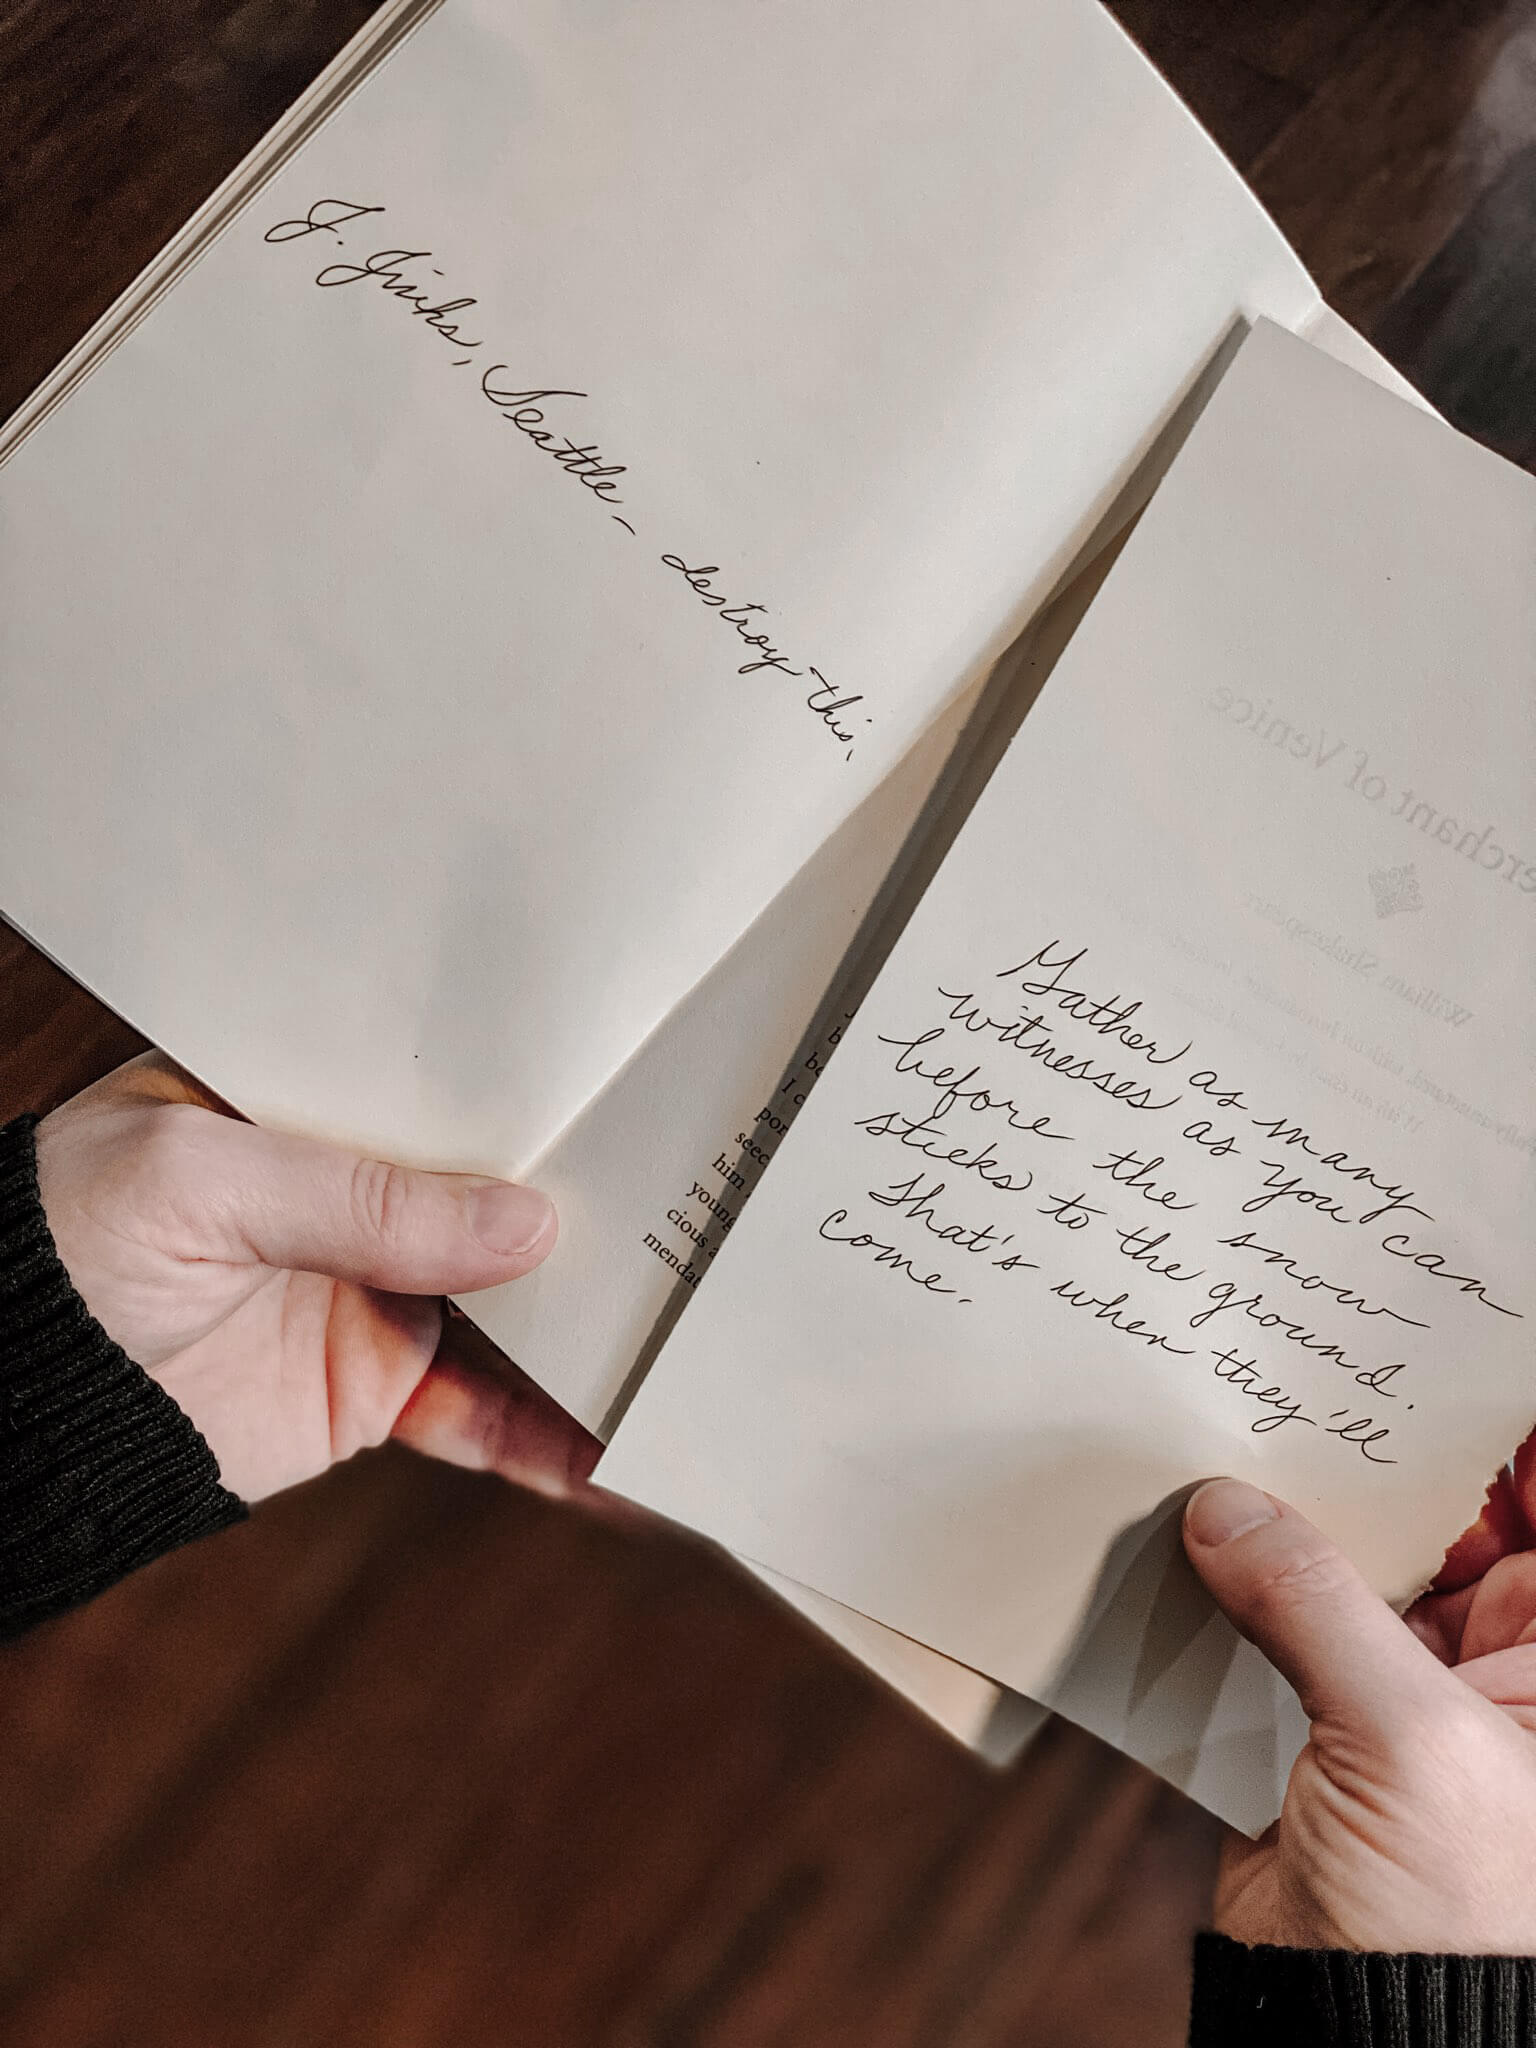 J. Jenks, Seattle - destroy this.
Gather as many
witnesses as you can
before the snow
sticks to the ground.
That's when they'll
come.
erchant of Venice
William Shakespeare
b
be
I c
por
seec
him
young
cious a
mendat